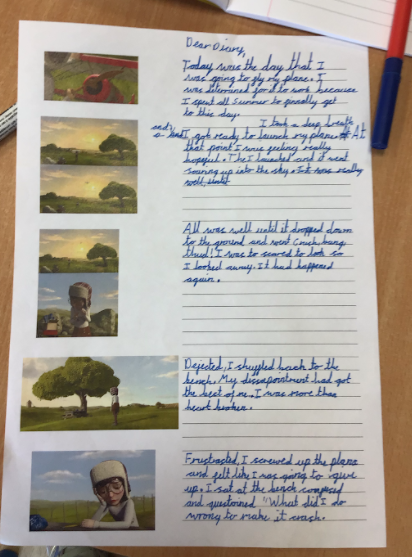 Dear Diary,
Today was the day that I
was going to fly my plane. I
was determined for it to work because
I spent all summer to finally get
to this day.
I took a deep breath
and I got ready to launch my plane. At
that point I was feeling really
hopeful. The I launched and it went
soaring up into the sky. It was really
well until
All was well until it dropped down
to the ground and went Crunch bang
thud! I was to scared to look so
I looked away. It had happened
again.
Dejected, I shuffled back to the
bench. My dissapointment had got
the best of me. I was more than
heart broken.
Frustrated I screwed up the plans
and felt like I was going to give
up. I sat at the bench confused
and questioned "What did I do
wrong to make it crash.